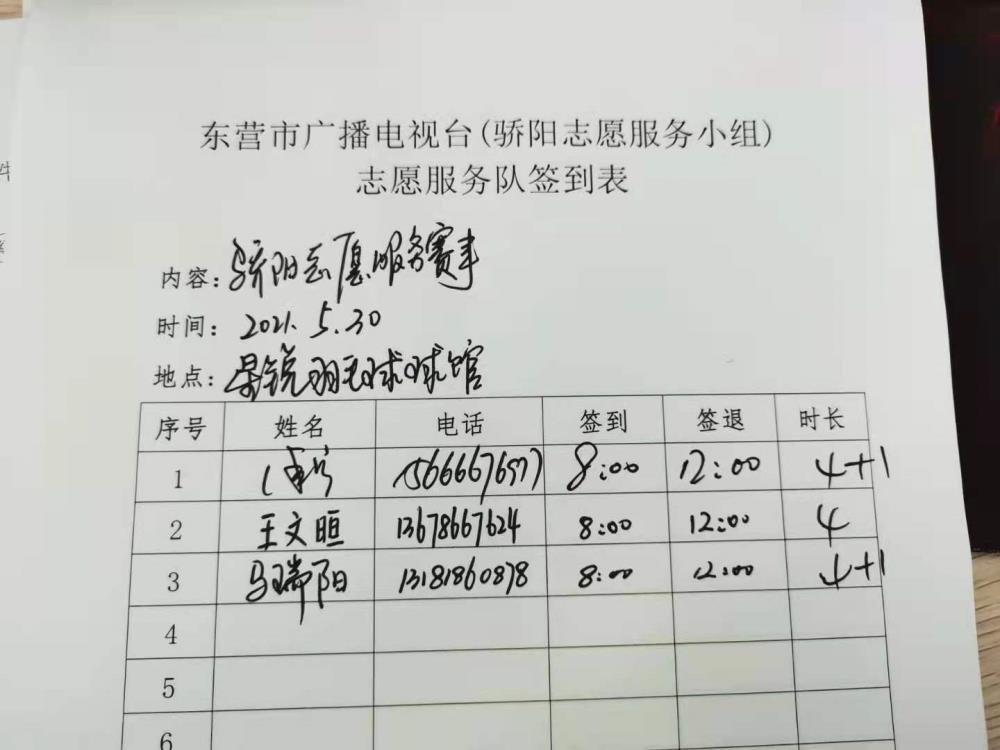 东营市广播电视台(骄阳志愿服务小组)
志愿服务队签到表
内容:骄阳志愿服务赛事
时间: 2021. 5.30
地点:星锐羽毛球球馆
序号 姓名 电话 签到 签退 时长
1 15666676577 8:00 12:00 4+1
2 王文晅 13678667624 8:00 12:00 4
3 马瑞阳 13181860878 8:00 12:00 4+1
4
5
6